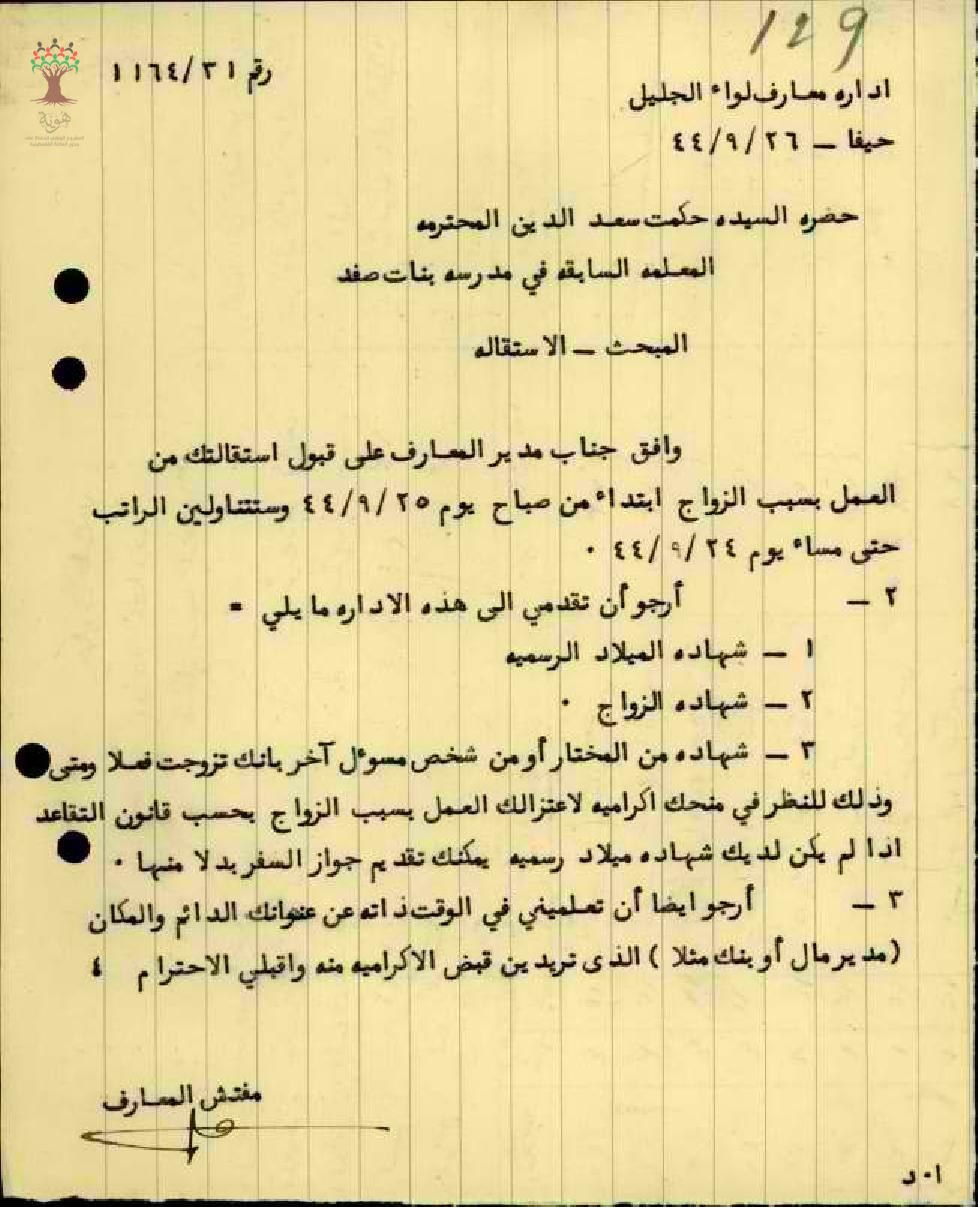 129
رقم ١١٦٤/٣١
اداره معارف لواء الجليل
حيفا – ٤٤/٩/٢٦
حضره السيده حكمت سعد الدين المحترمه
المعلمه السابقه في مدرسه بنات صفد
المبحث – الاستقاله
وافق جناب مدير المعارف على قبول استقالتك من
العمل بسبب الزواج ابتداء من صباح يوم ٤٤/٩/٢٥ وستتناولين الراتب
حتى مساء يوم ٤٤/٩/٢٤ ٠
٢ – أرجو أن تقدمي الى هذه الاداره ما يلي =
١ – شهاده الميلاد الرسميه
٢ – شهاده الزواج ٠
٣ – شهاده من المختار أو من شخص مسوءل آخر بانك تزوجت فعلا ومتى
وذلك للنظر في منحك اكراميه لاعتزالك العمل بسبب الزواج بحسب قانون التقاعد
اذا لم يكن لديك شهاده ميلاد رسميه يمكنك تقديم جواز السفر بدلا منها ٠
٣ – أرجو ايضا أن تعلميني في الوقت ذاته عن عنوانك الدائم والمكان
(مدير مال أو بنك مثلا ) الذى تريدين قبض الاكراميه منه واقبلي الاحترام ٤
مفتش المعارف
٠١ د
هوية